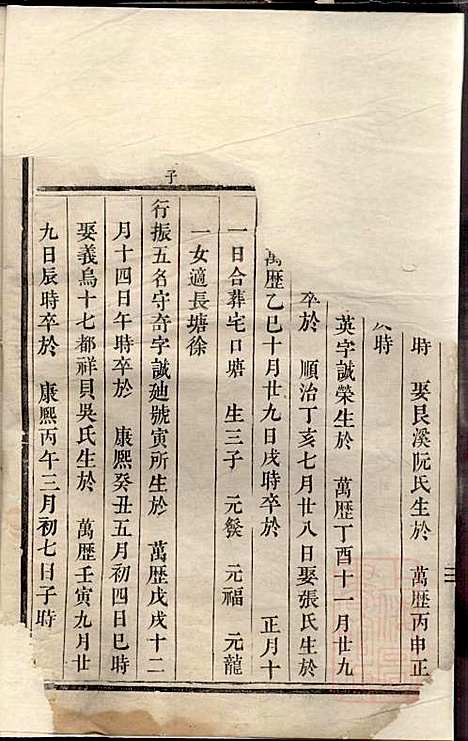 時　娶艮溪阮氏生於　萬歷丙申正
時
英字誠榮生於　萬歷丁酉十一月廿九
卒於　順治丁亥七月廿八日娶張氏生於
萬歷乙巳十月廿九日戌時卒於　正月十
一日合葬宅口塘　生三子　元繁　元福　元龍
一女適長塘徐
子
行振五名守奇字誠廸號寅所生於　萬歷戊戌十二
月十四日午時卒於　康熙癸丑五月初四日巳時
娶義烏十七都祥貝吳氏生於　萬歷壬寅九月廿
九日辰時卒於　康熙丙午三月初七日子時